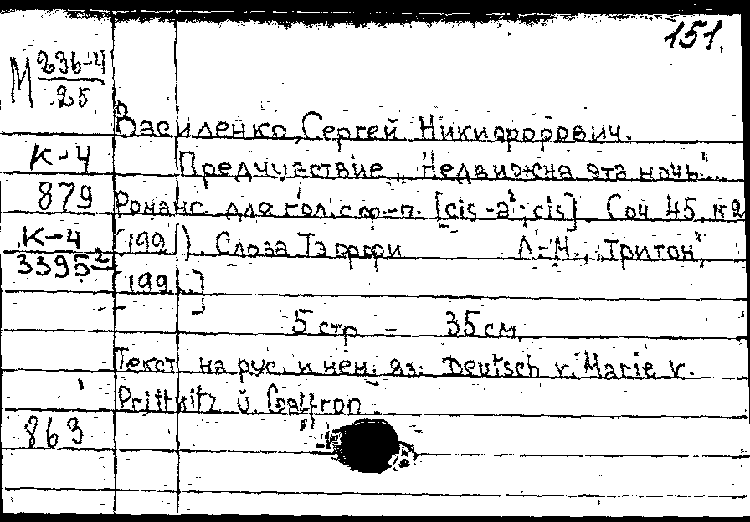 151.
М 236-4/25
Василенко, Сергей Никифорович.
К-4
Предчувствие „Недвижна эта ночь"...
879
Романс для гол. с ф-п. [cis-a²; cis] Соч. 45, №2
К-4
(199 ). Слова Тэффи Л.-М., „Тритон",
3395²
[199 .]
5 стр = 35 см.
Текст на рус. и нем. яз. Deutsch v. Marie v.
Prittwitz u. Gaffron.
863